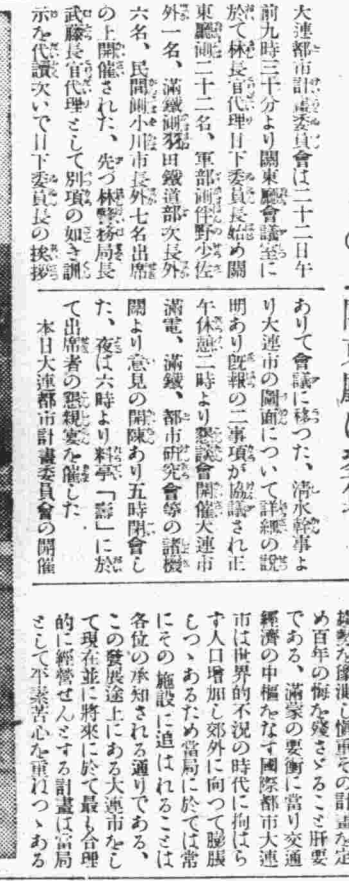 大連都市計畫委員會は二十二日午
前九時三十分より關東廳會議室に
於て林長官代理日下委員長始め關
東廳側二十二名、軍部側伴野少佐
外一名、滿鐵側羽田鐵道部次長外
六名、民間側小川市長外七名出席
の上開催された、先づ林警務局長
武藤長官代理として別項の如き訓
示を代讀次いで日下委員長の挨拶
ありて會議に移つた、清水幹事よ
り大連市の圖面について詳細の說
明あり既報の二事項が協議され正
午休憩二時より懇談會開催大連市
滿電、滿鐵、都市研究會等の諸機
關より意見の開陳あり五時閉會し
た、夜は六時より料亭「壽」に於
て出席者の懇親宴を催した
本日大連都市計畫委員會の開催
め百年の悔を殘さゞること肝要
である、滿蒙の要衝に當り交通
經濟の中樞をなす國際都市大連
市は世界的不況の時代に拘はら
す人口增加し郊外に向つて膨脹
しつゝあるため當局に於ては常
にその施設に追はれることは
各位の承知される通りである、
この發展途上にある大連市をし
て現在並に將來に於て最も合理
的に經營せんとする計畫は當局
として平素苦心を重ねつゝある